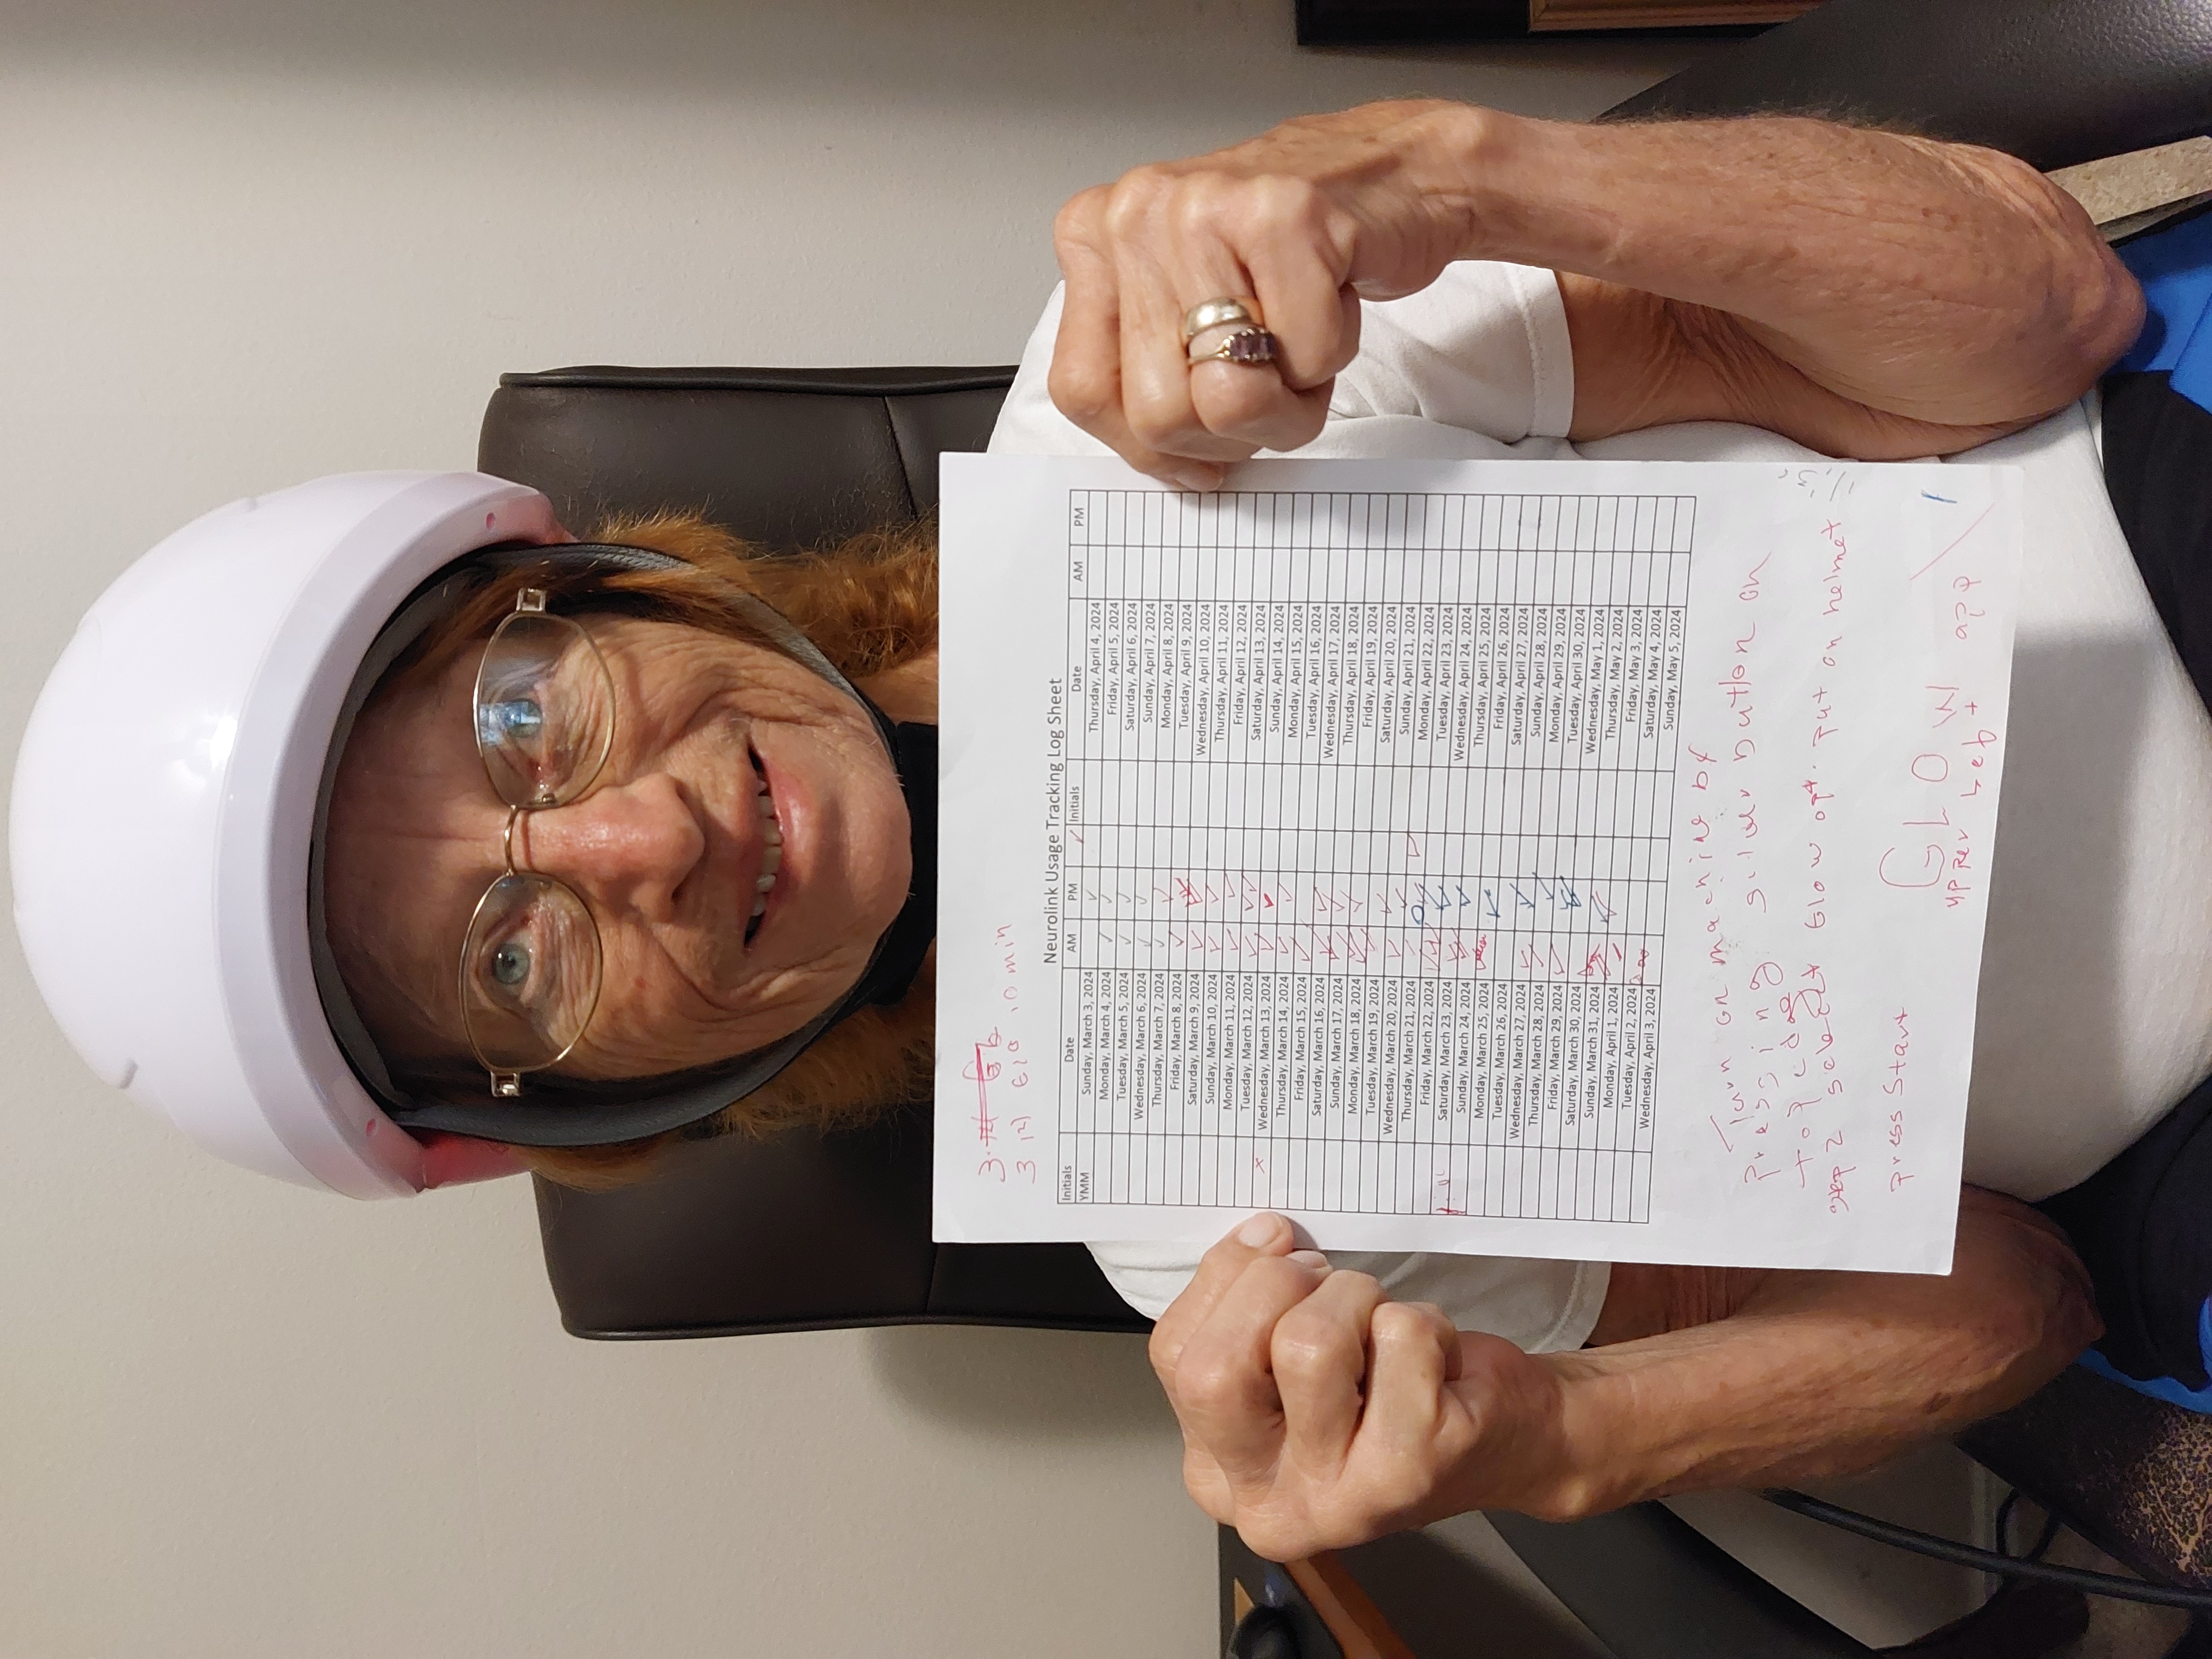 3 (2) 610 , 10 min
Neurolink Usage Tracking Log Sheet
Initials Date AM PM Initials Date AM PM
YMM Sunday, March 3, 2024 ✓ Thursday, April 4, 2024
Monday, March 4, 2024 ✓ ✓ Friday, April 5, 2024
Tuesday, March 5, 2024 ✓ ✓ Saturday, April 6, 2024
Wednesday, March 6, 2024 ✓ ✓ Sunday, April 7, 2024
Thursday, March 7, 2024 ✓ ✓ Monday, April 8, 2024
Friday, March 8, 2024 ✓ Tuesday, April 9, 2024
Saturday, March 9, 2024 ✓ Wednesday, April 10, 2024
Sunday, March 10, 2024 ✓ ✓ Thursday, April 11, 2024
Monday, March 11, 2024 ✓ ✓ Friday, April 12, 2024
Tuesday, March 12, 2024 ✓ ✓ Saturday, April 13, 2024
x Wednesday, March 13, 2024 ✓ ✓ Sunday, April 14, 2024
Thursday, March 14, 2024 ✓ ✓ Monday, April 15, 2024
Friday, March 15, 2024 ✓ Tuesday, April 16, 2024
Saturday, March 16, 2024 ✓ ✓ Wednesday, April 17, 2024
Sunday, March 17, 2024 ✓ ✓ Thursday, April 18, 2024
Monday, March 18, 2024 ✓ ✓ Friday, April 19, 2024
Tuesday, March 19, 2024 ✓ Saturday, April 20, 2024
Wednesday, March 20, 2024 ✓ ✓ Sunday, April 21, 2024
Thursday, March 21, 2024 ✓ ✓ Monday, April 22, 2024
Friday, March 22, 2024 ✓ ✓ Tuesday, April 23, 2024
Saturday, March 23, 2024 ✓ ✓ Wednesday, April 24, 2024
Sunday, March 24, 2024 ✓ ✓ Thursday, April 25, 2024
Monday, March 25, 2024 Friday, April 26, 2024
Tuesday, March 26, 2024 ✓ Saturday, April 27, 2024
Wednesday, March 27, 2024 ✓ ✓ Sunday, April 28, 2024
Thursday, March 28, 2024 ✓ ✓ Monday, April 29, 2024
Friday, March 29, 2024 ✓ Tuesday, April 30, 2024
Saturday, March 30, 2024 Wednesday, May 1, 2024
Sunday, March 31, 2024 ✓ Thursday, May 2, 2024
Monday, April 1, 2024 Friday, May 3, 2024
Tuesday, April 2, 2024 Saturday, May 4, 2024
Wednesday, April 3, 2024 Sunday, May 5, 2024
Turn on machine by
pressing silver button on
top edge
step 2 select Glow opt. put on helmet
press start
GLOW app
upper Left